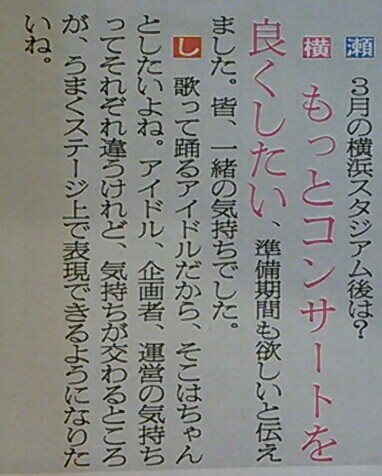 瀬 3月の横浜スタジアム後は?
横 もっとコンサートを
良くしたい、準備期間も欲しいと伝え
ました。皆、一緒の気持ちでした。
し 歌って踊るアイドルだから、そこはちゃん
としたいよね。アイドル、企画者、運営の気持ち
ってそれぞれ違うけれど、気持ちが交わるところ
が、うまくステージ上で表現できるようになりた
いね。